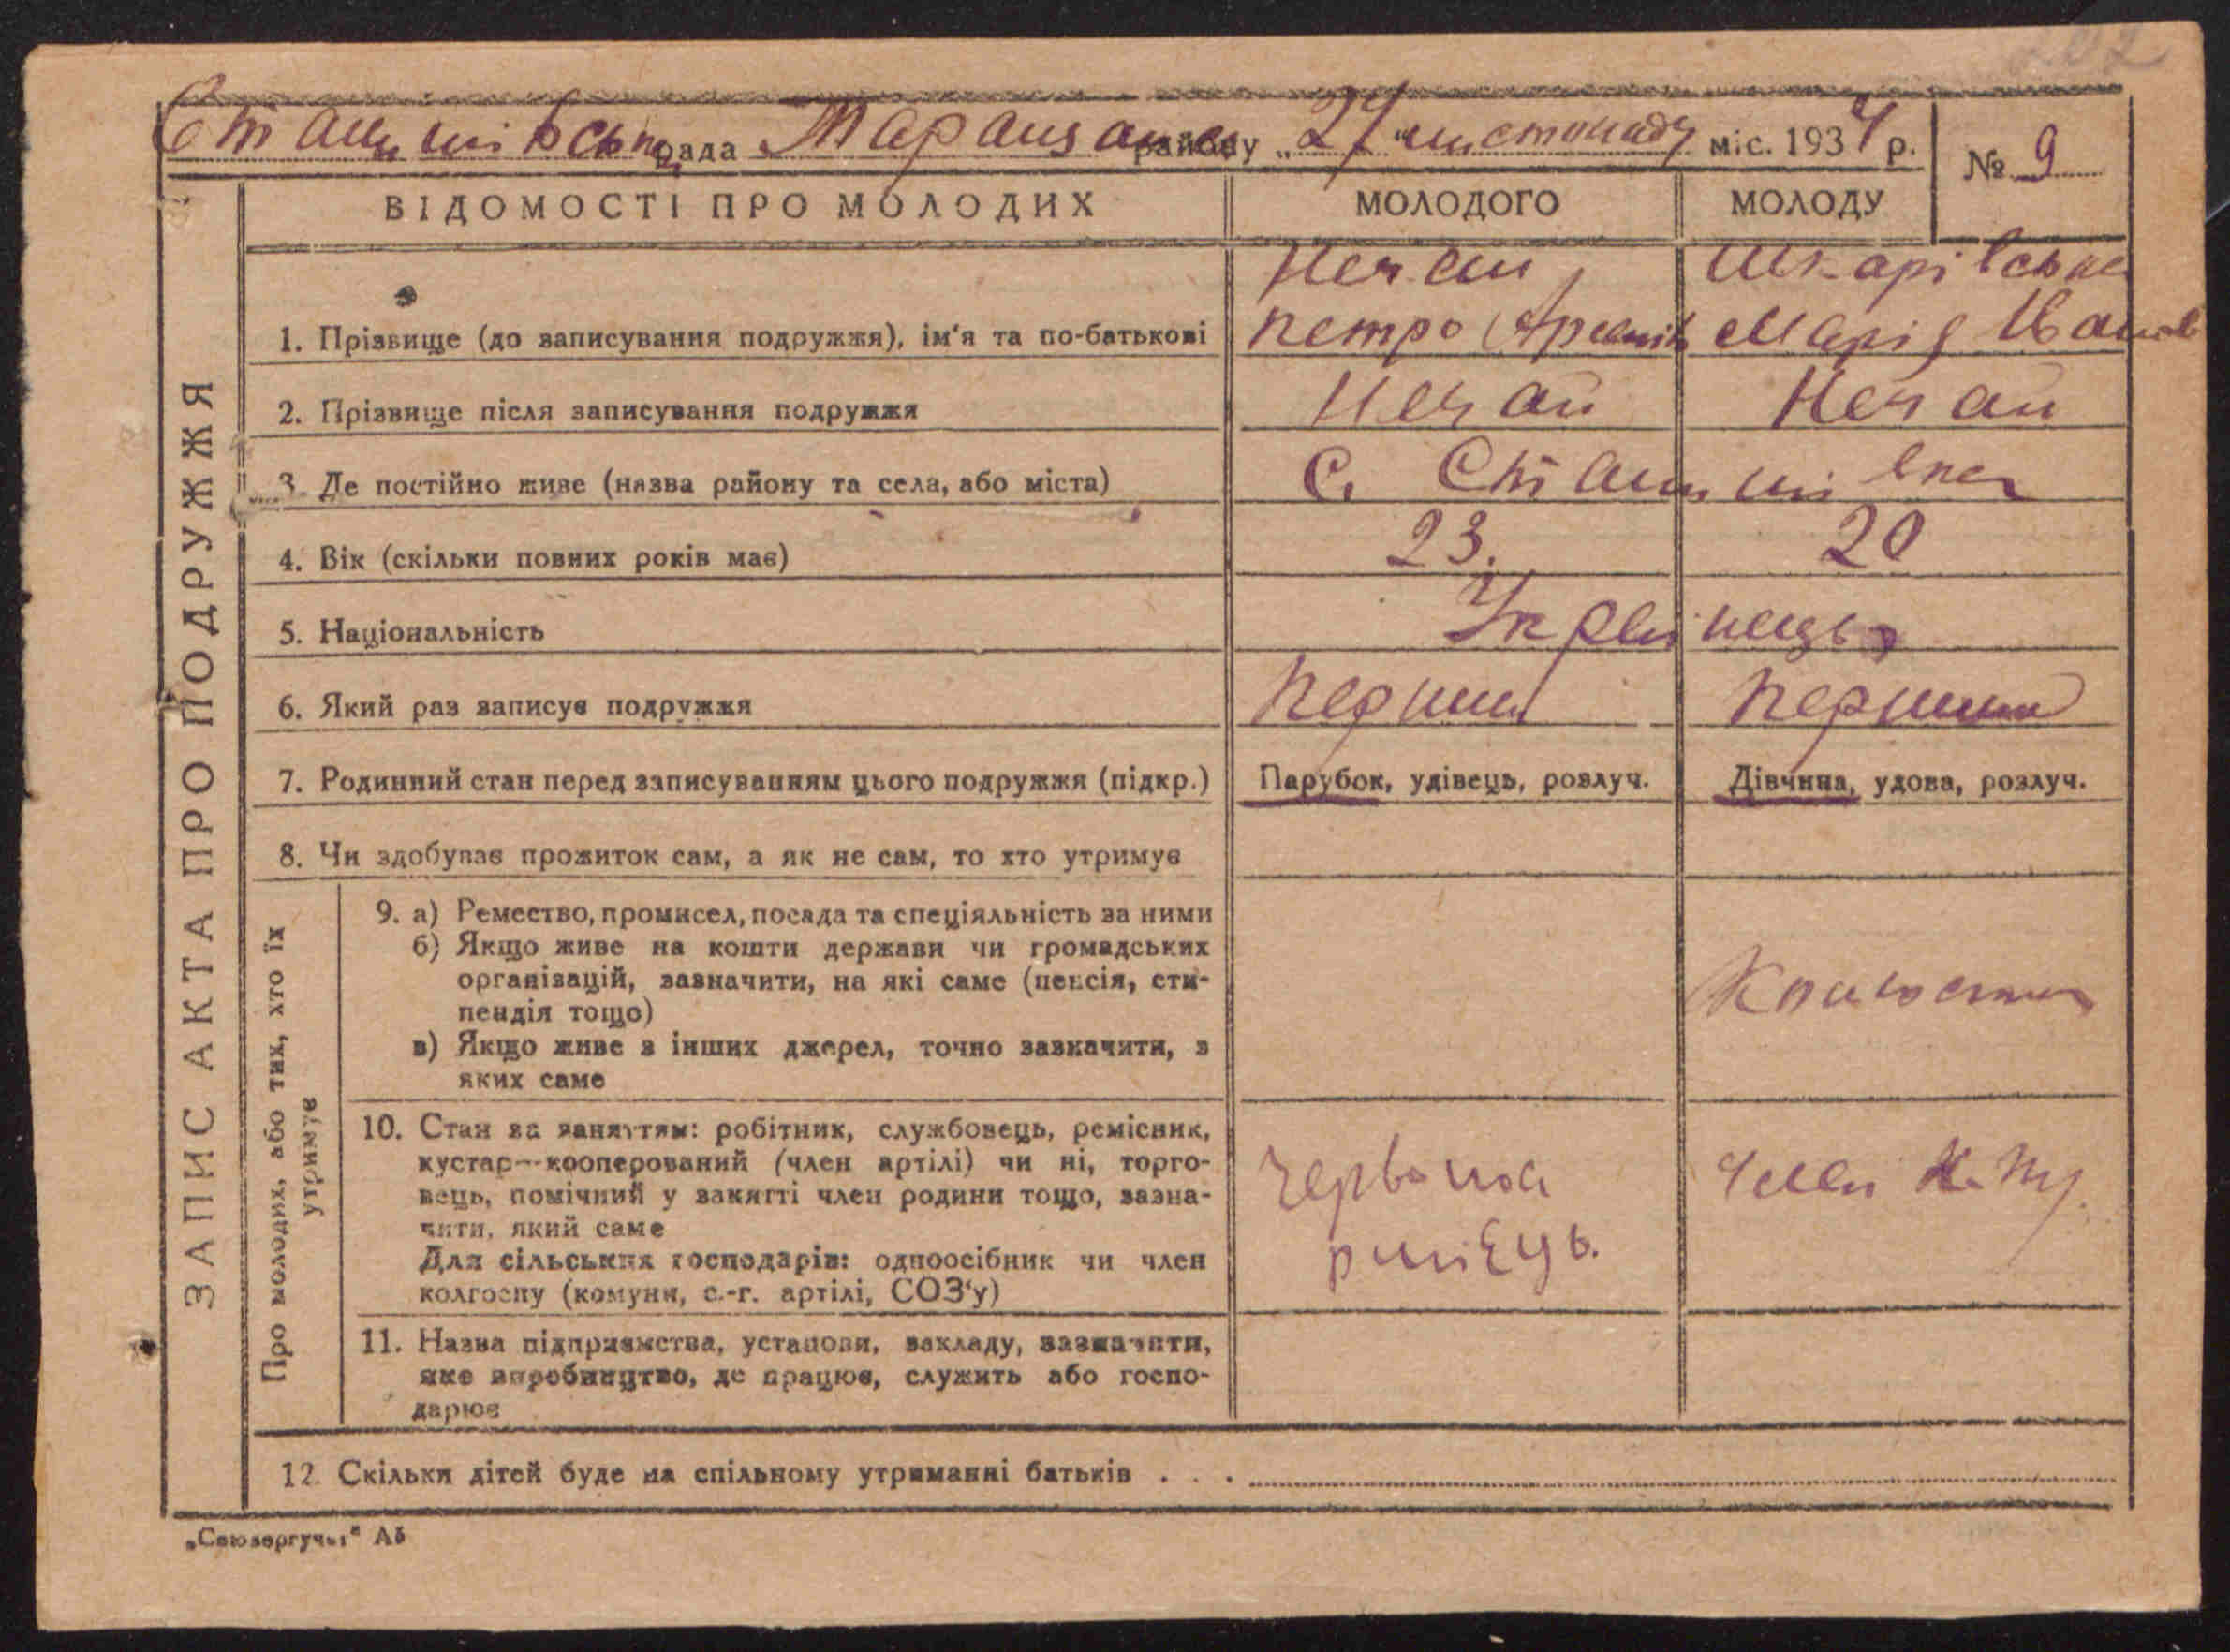 202
Станишівська рада Таращанськ району „27“ листопаду міс. 1934 р.
№ 9
ЗАПИС АКТА ПРО ПОДРУЖЖЯ
ВІДОМОСТІ ПРО МОЛОДИХ МОЛОДОГО МОЛОДУ
Нечай Шкарівська
1. Прізвище (до записування подружжя), ім'я та по-батькові Петро Марія Іванов
2. Прізвище після записування подружжя Нечай Нечай
3. Де постійно живе (назва району та села, або міста) С. Станишівка
4. Вік (скільки повних років має) 23. 20
5. Національність Українець
6. Який раз записує подружжя Перший Перший
7. Родинний стан перед записуванням цього подружжя (підкр.) Парубок, удівець, розлуч. Дівчина, удова, розлуч.
8. Чи здобуває прожиток сам, а як не сам, то хто утримує
Про молодих, або тих, хто їх
утримує
9. а) Ремество, промисел, посада та спеціяльність за ними
б) Якщо живе на кошти держави чи громадських
організацій, зазначити, на які саме (пенсія, сти-
пендія тощо)
в) Якщо живе з інших джерел, точно зазначити, з
яких саме
10. Стан за заняттям: робітник, службовець, ремісник,
кустар—кооперований (член артілі) чи ні, торго-
вець, помічний у занятті член родини тощо, зазна-
чити, який саме
Для сільських господарів: одноосібник чи член
колгоспу (комуни, с.-г. артілі, СОЗ'у)
Червоноа
рмієць.
член
11. Назва підприємства, установи, закладу, зазначити,
яке виробництво, де працює, служить або госпо-
дарює
12. Скільки дітей буде на спільному утриманні батьків . . .